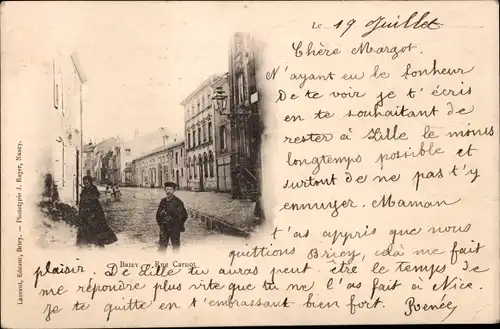 Le 19 Juillet
Chère Margot.
N'ayant eu le bonheur
De te voir je t'écris
en te souhaitant de
rester à Lille le moins
longtemps possible et
surtout de ne pas t'y
ennuyer. Maman
t'as appris que nous
quittions Briey, çela me fait
plaisir. De Lille tu auras peut-être le temps de
me répondre plus vite que tu ne l'as fait à Nice.
Je te quitte en t'embrassant bien fort. Renée
BRIEY — Rue Carnot
Laurent, Editeur, Briey. — Phototypie J. Royer, Nancy.